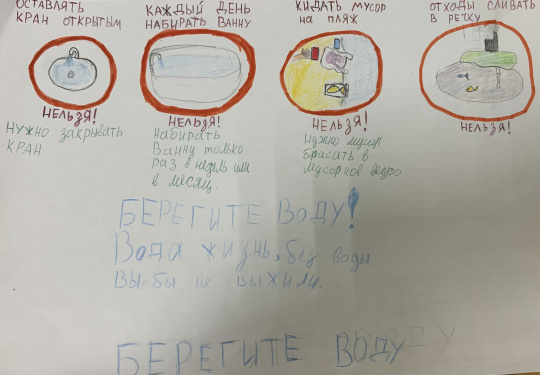 ОСТАВЛЯТЬ
КРАН ОТКРЫТЫМ
НЕЛЬЗЯ!
Нужно закрывать
кран
КАЖДЫЙ ДЕНЬ
НАБИРАТЬ ВАННУ
НЕЛЬЗЯ!
Набирать
Ванну только
раз в неделю или
в месяц.
КИДАТЬ МУСОР
НА ПЛЯЖ
НЕЛЬЗЯ!
Нужно мусор
бросать в
мусорное ведро
ОТХОДЫ СЛИВАТЬ
В РЕЧКУ
НЕЛЬЗЯ!
БЕРЕГИТЕ ВОДУ!
Вода жизнь, без воды
Вы бы не выжили.
БЕРЕГИТЕ ВОДУ